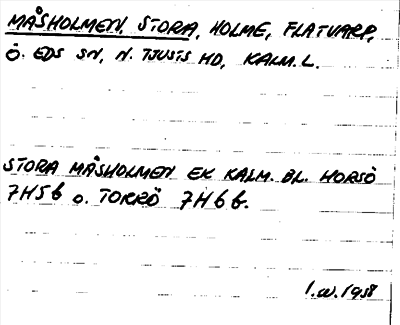 MÅSHOLMEN, STORA, HOLME, FLATVARP,
Ö. EDS SN, N. TJUSTS HD, KALM. L.
STORA MÅSHOLMEN EK KALM. BL. HORSÖ
7H5b o. TORRÖ 7H6b.
I.W. 1958